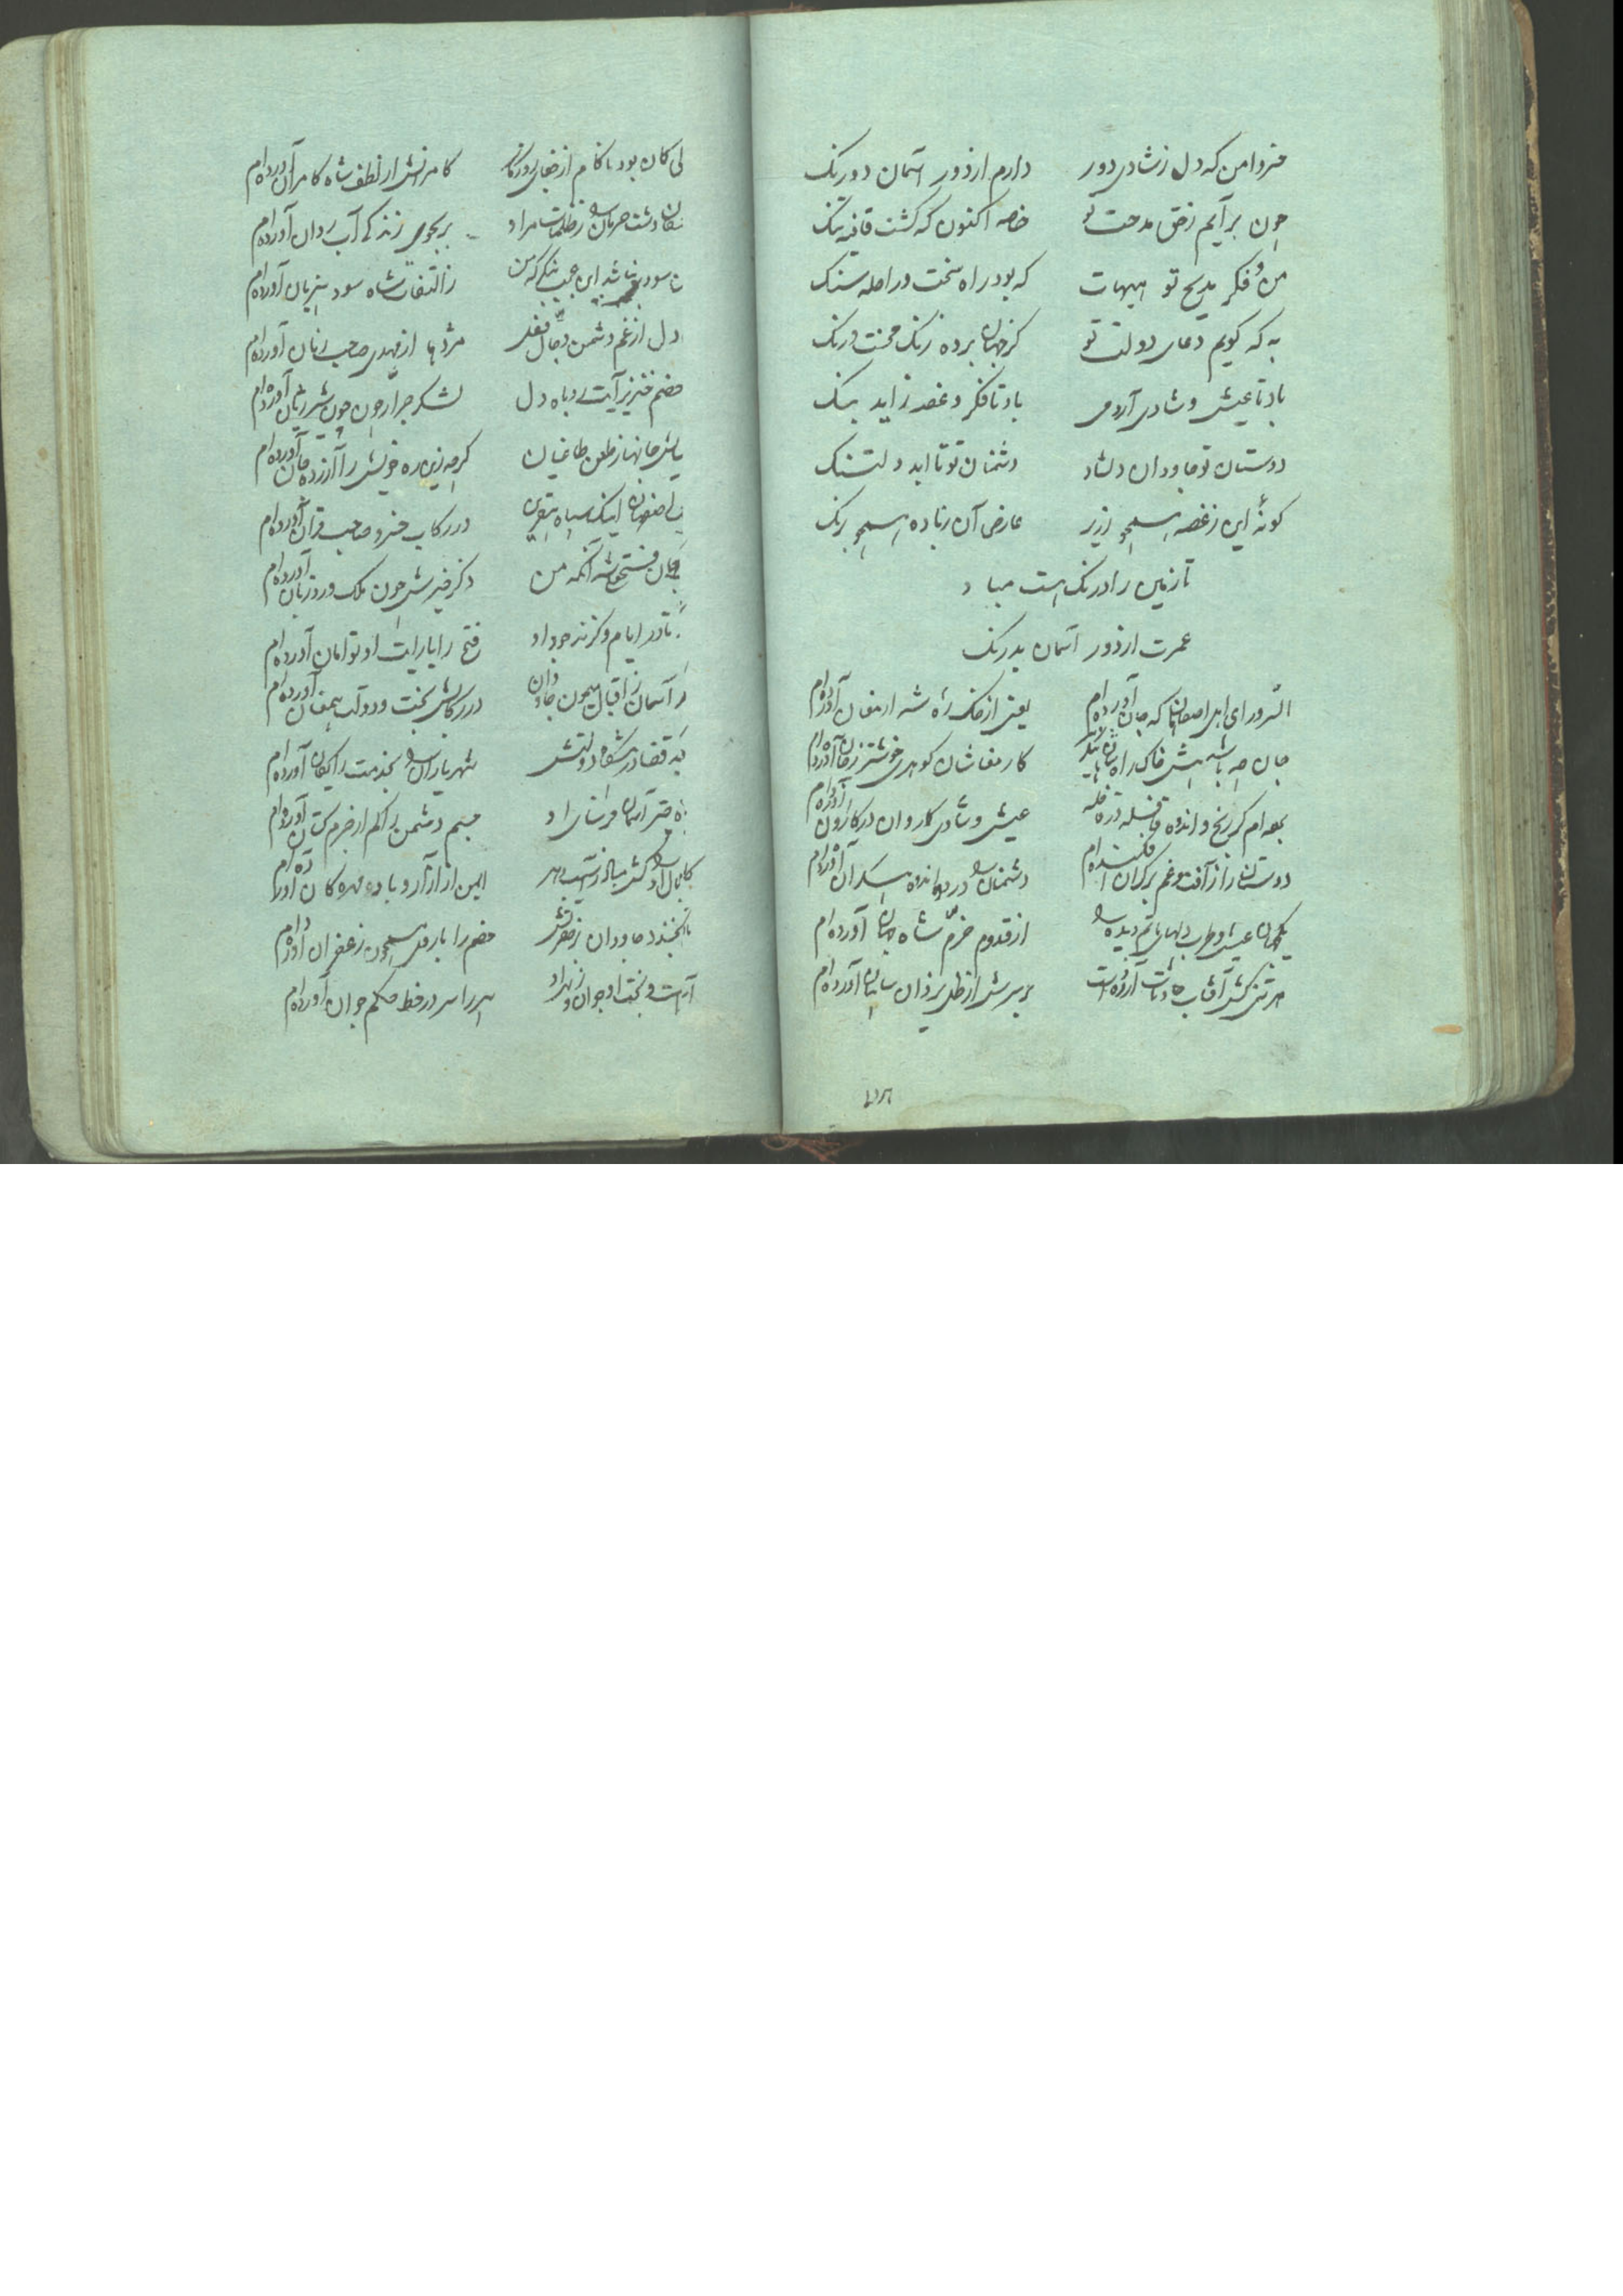 خسروا من که دل ز شادی دور دارم از دور آسمان دو رنک
چون برآیم ز حق مدحت تو خاصه اکنون که کشت قافیه تنک
من و فکر مدیح تو هیهات که بود راه سخت و راحله سنک
به که کویم دعای دولت تو کز جهان برده زنک محنت و رنک
باد تا عیش و شادی آرد می باد تا فکر و غصه زاید بنک
دوستان تو جاودان دلشاد دشمنان تو تا ابد دلتنک
کونهٔ این ز غصه همچو زریر عارض آن ز باده همچو رنک
تا زمین را درنک هست مباد
عمرت از دور آسمان بدرنک
السرور ای اهل اصفاهان که جان آورده‌ام یعنی از خاک ره شه ارمغان آورده‌ام
جان چه باشد پیش خاک راه کارمغانشان کوهری خوشتر ز جان آورده‌ام
رنج و اندوه قافله در قافله عیش و شادی کاروان در کاروان آورده‌ام
دوستان را از آفت و غم بر کران افکنده‌ام دشمنان را درد و اندوه بیکران آورده‌ام
یکجهان عیش و طرب دلهای ماتم دیده را از قدوم خرم شاه جهان آورده‌ام
هر تنی کش آفتاب حادثات آزرده است بر سرش از ظل یزدان سایبان آورده‌ام
۲۵۲
کان بود ناکام از جفای روزکار کامرانش از لطف شاه کامران آورده‌ام
دشت حرمان را ز ظلمات مراد بر بجوی زندکی آب روان آورده‌ام
سود باشد این عجب بنکر که من ز التفات شاه سود بیزیان آورده‌ام
دل از غم دشمن دجال فعل مژدها از مهدی صاحب زمان آورده‌ام
خصم خنزیر آیت روباه دل لشکر جرار چون شیر ژیان آورده‌ام
جانها ز طعن طاغیان کرچه زین ره خویش را آزرده جان آورده‌ام
اصفهان اینک سپاه در رکاب خسرو صاحب قران آورده‌ام
جهان فتحعلیشه آنکه من ذکر خیرش چون ملک ورد زبان آورده‌ام
تا در ایام وکز نه جود او فتح را با رایت او توامان آورده‌ام
آسمان ز اقبال همچون جاودان در رکابش بخت و دولت همعنان آورده‌ام
قضا در پیشکاه دولتش شهریاران را بخدمت رایکان آورده‌ام
آسمان فرسای او جسم دشمن را کم از جرم کتان آورده‌ام
ایمن از آزار و باد مهرکان آورده‌ام
بخندد جاودان خصم را با روی همچون زعفران آورده‌ام
بخت او جوان پیر را سر در خط حکم جوان آورده‌ام